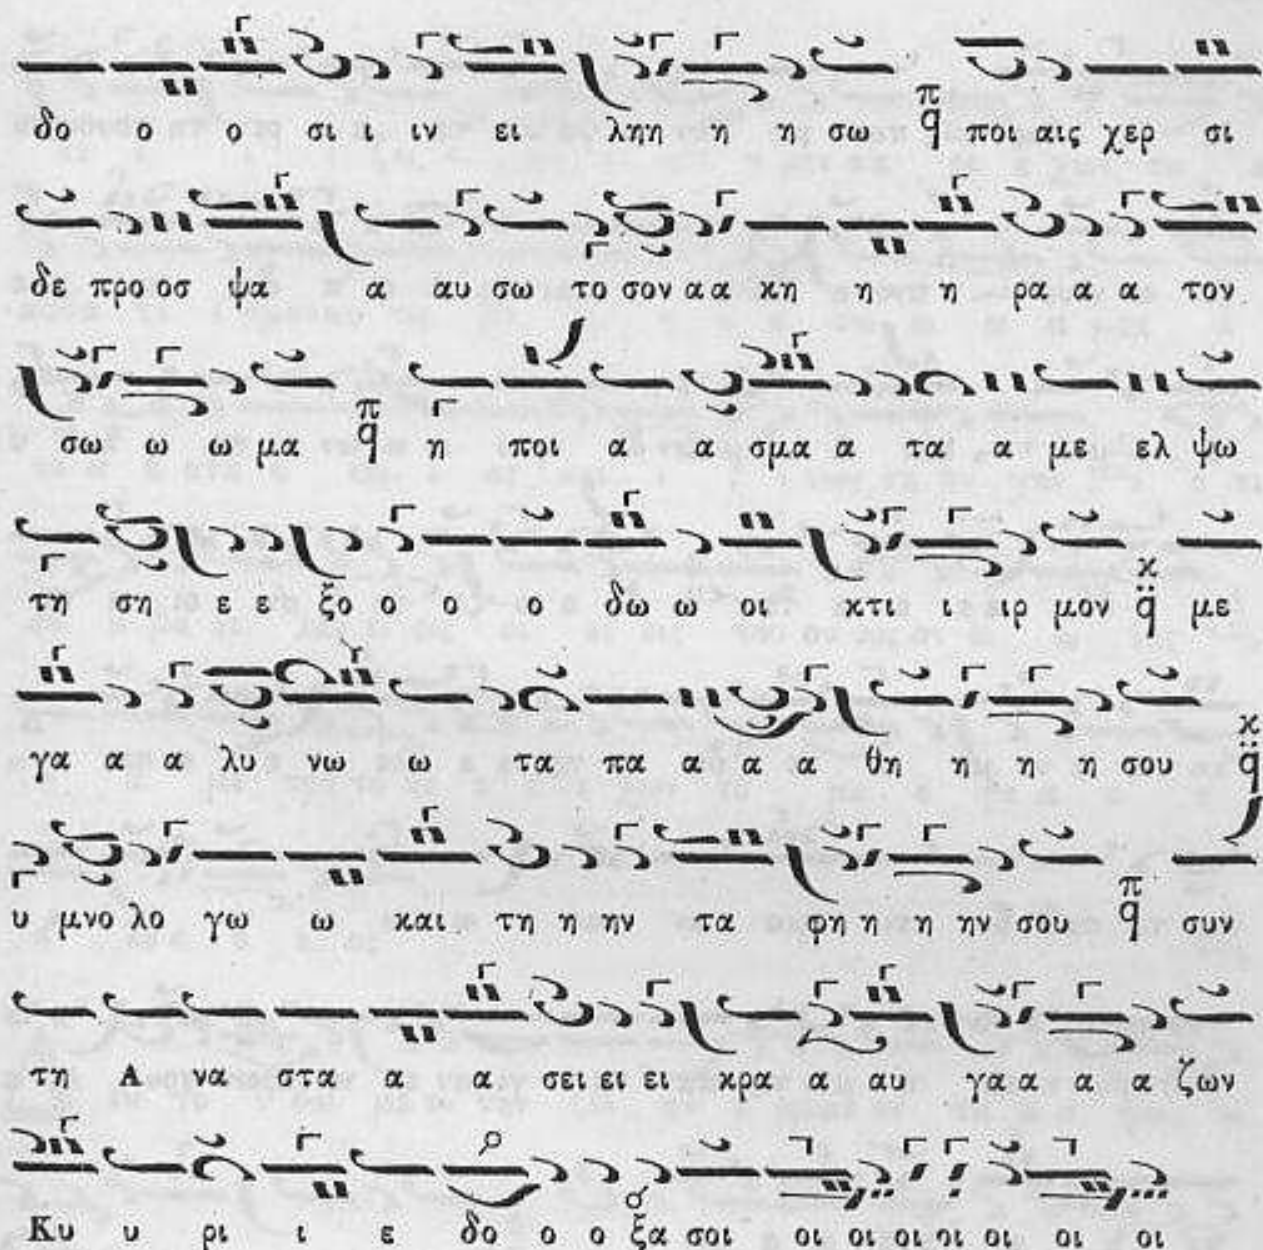 δο ο ο σι ι ιν ει ληη η η σω π ϥ ποι αις χερ σι
δε προ οσ ψα α αυ σω το σον α α κη η η ρα α α τον
σω ω ω μα π ϥ η ποι α α σμα α τα α με ελ ψω
τη ση ε ε ξο ο ο ο δω ω οι κτι ι ιρ μον κ ϥ̈ με
γα α α λυ νω ω τα πα α α α θη η η η σου κ ϥ̈
υ μνο λο γω ω και τη η ην τα φη η η ην σου π ϥ συν
τη Α να στα α α σει ει ει κρα α αυ γα α α α ζων
Κυ υ ρι ι ε δο ο ο ξα σοι οι οι οι οι οι οι οι